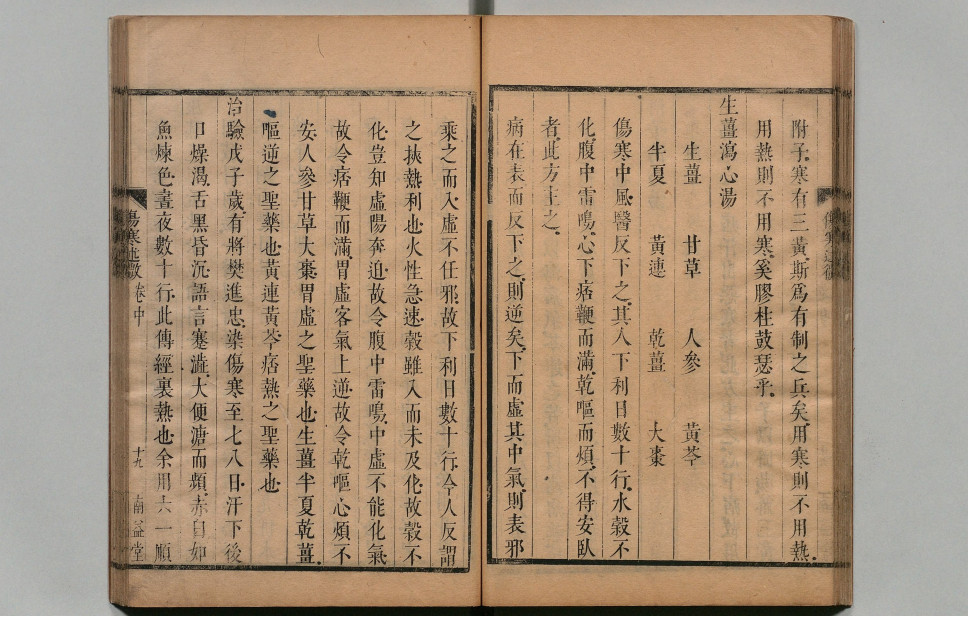 附子寒有三黃斯爲有制之兵矣用寒則不用熱
用熱則不用寒奚膠柱鼓瑟乎
生薑瀉心湯
生薑 甘草 人參 黃芩
半夏 黃連 乾薑 大棗
傷寒中風醫反下之其人下利日數十行水穀不
化腹中雷鳴心下痞鞕而滿乾嘔而煩不得安臥
者此方主之
病在表而反下之則逆矣下而虛其中氣則表邪
乘之而入虛不任邪故下利日數十行今人反謂
之挾熱利也火性急速穀雖入而未及化故穀不
化豈知虛陽奔迫故令腹中雷鳴中虛不能化氣
故令痞鞕而滿胃虛客氣上逆故令乾嘔心煩不
安人參甘草大棗胃虛之聖藥也生薑半夏乾薑
嘔逆之聖藥也黃連黃芩痞熱之聖藥也
治驗戊子歲有將樊進忠染傷寒至七八日汗下後
口燥渴舌黑昏沉語言蹇澁大便溏而頻赤白如
魚煉色晝夜數十行此傳經裏熱也余用六一順
傷寒述微 卷中 十九 南益堂